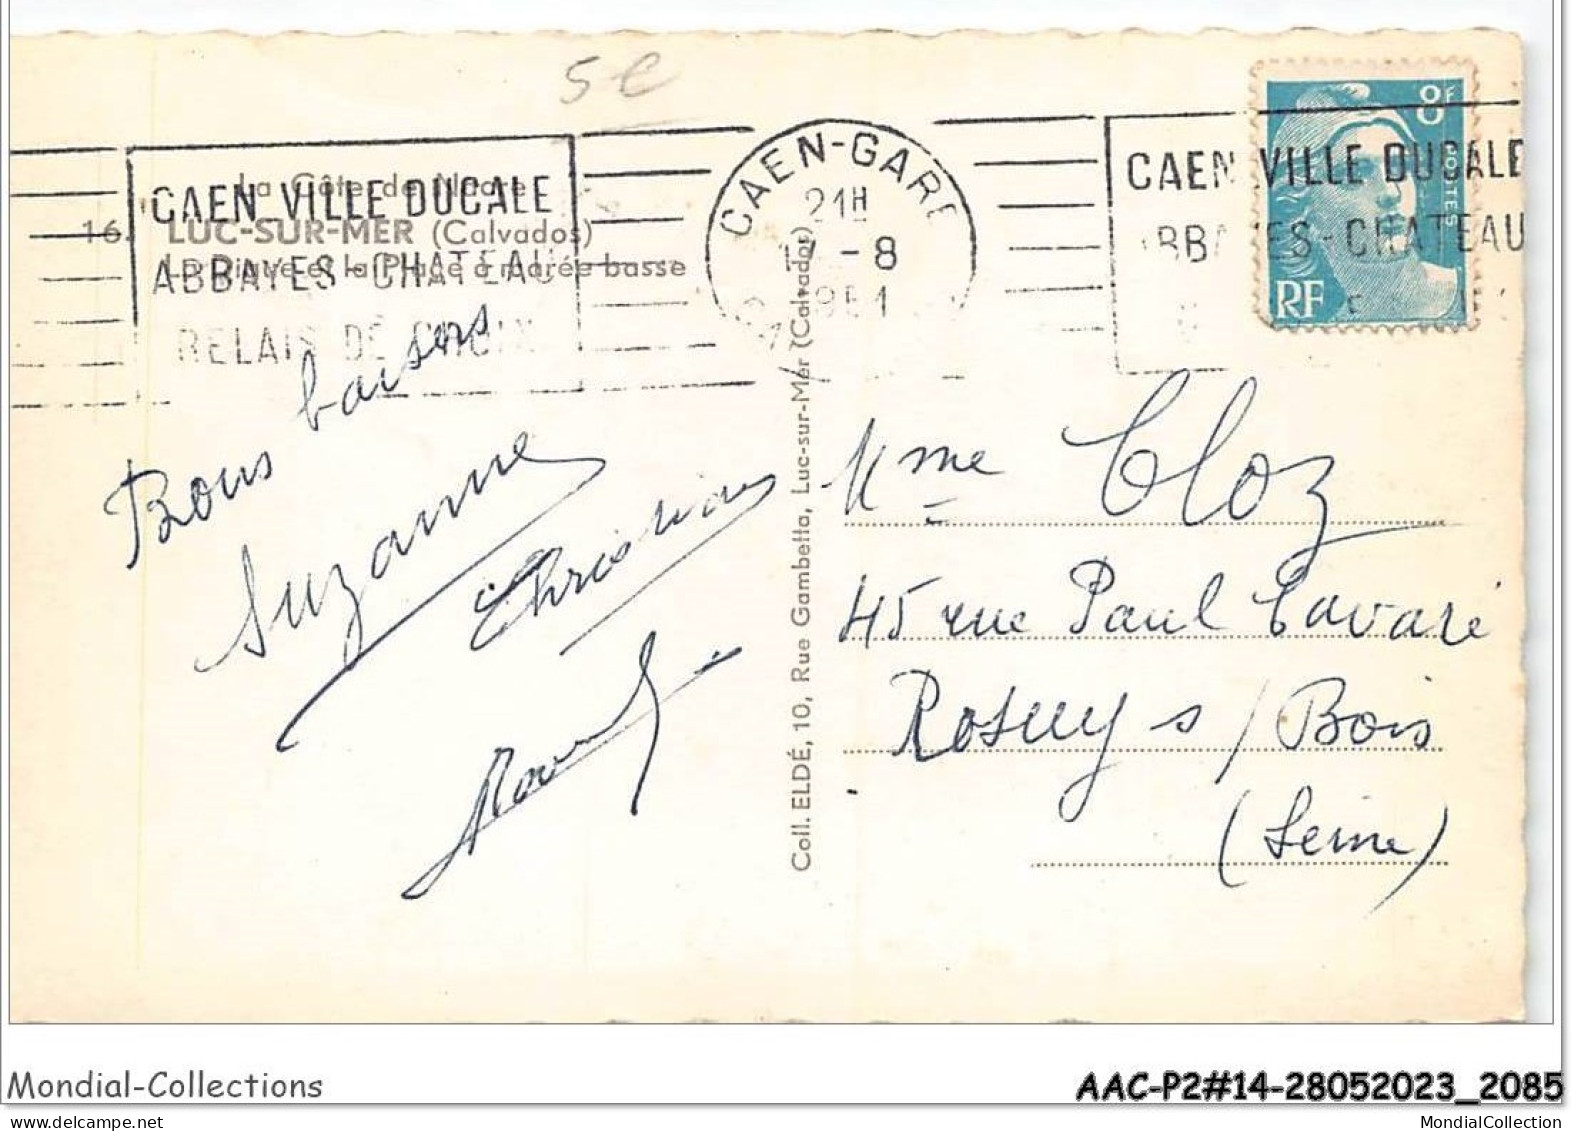 5 e
CAEN VILLE DUCALE
ABBAYES - CHATEAU
RELAIS DE CHOIX
La Côte de Nacre
16. LUC-SUR-MER (Calvados)
La Digue et la Plage à marée basse
CAEN-GARE
21H
17 - 8
1951
CAEN VILLE DUCALE
ABBAYES - CHATEAU
8F
POSTES
RF
Bons baisers
Suzanne
Christian
Coll. ELDÉ, 10, Rue Gambetta, Luc-sur-Mer (Calvados)
Mme Cloz
45 rue Paul Cavaré
Rosny s/ Bois
(Seine)
Mondial-Collections
AAC-P2#14-28052023_2085
MondialCollection
delcampe.net